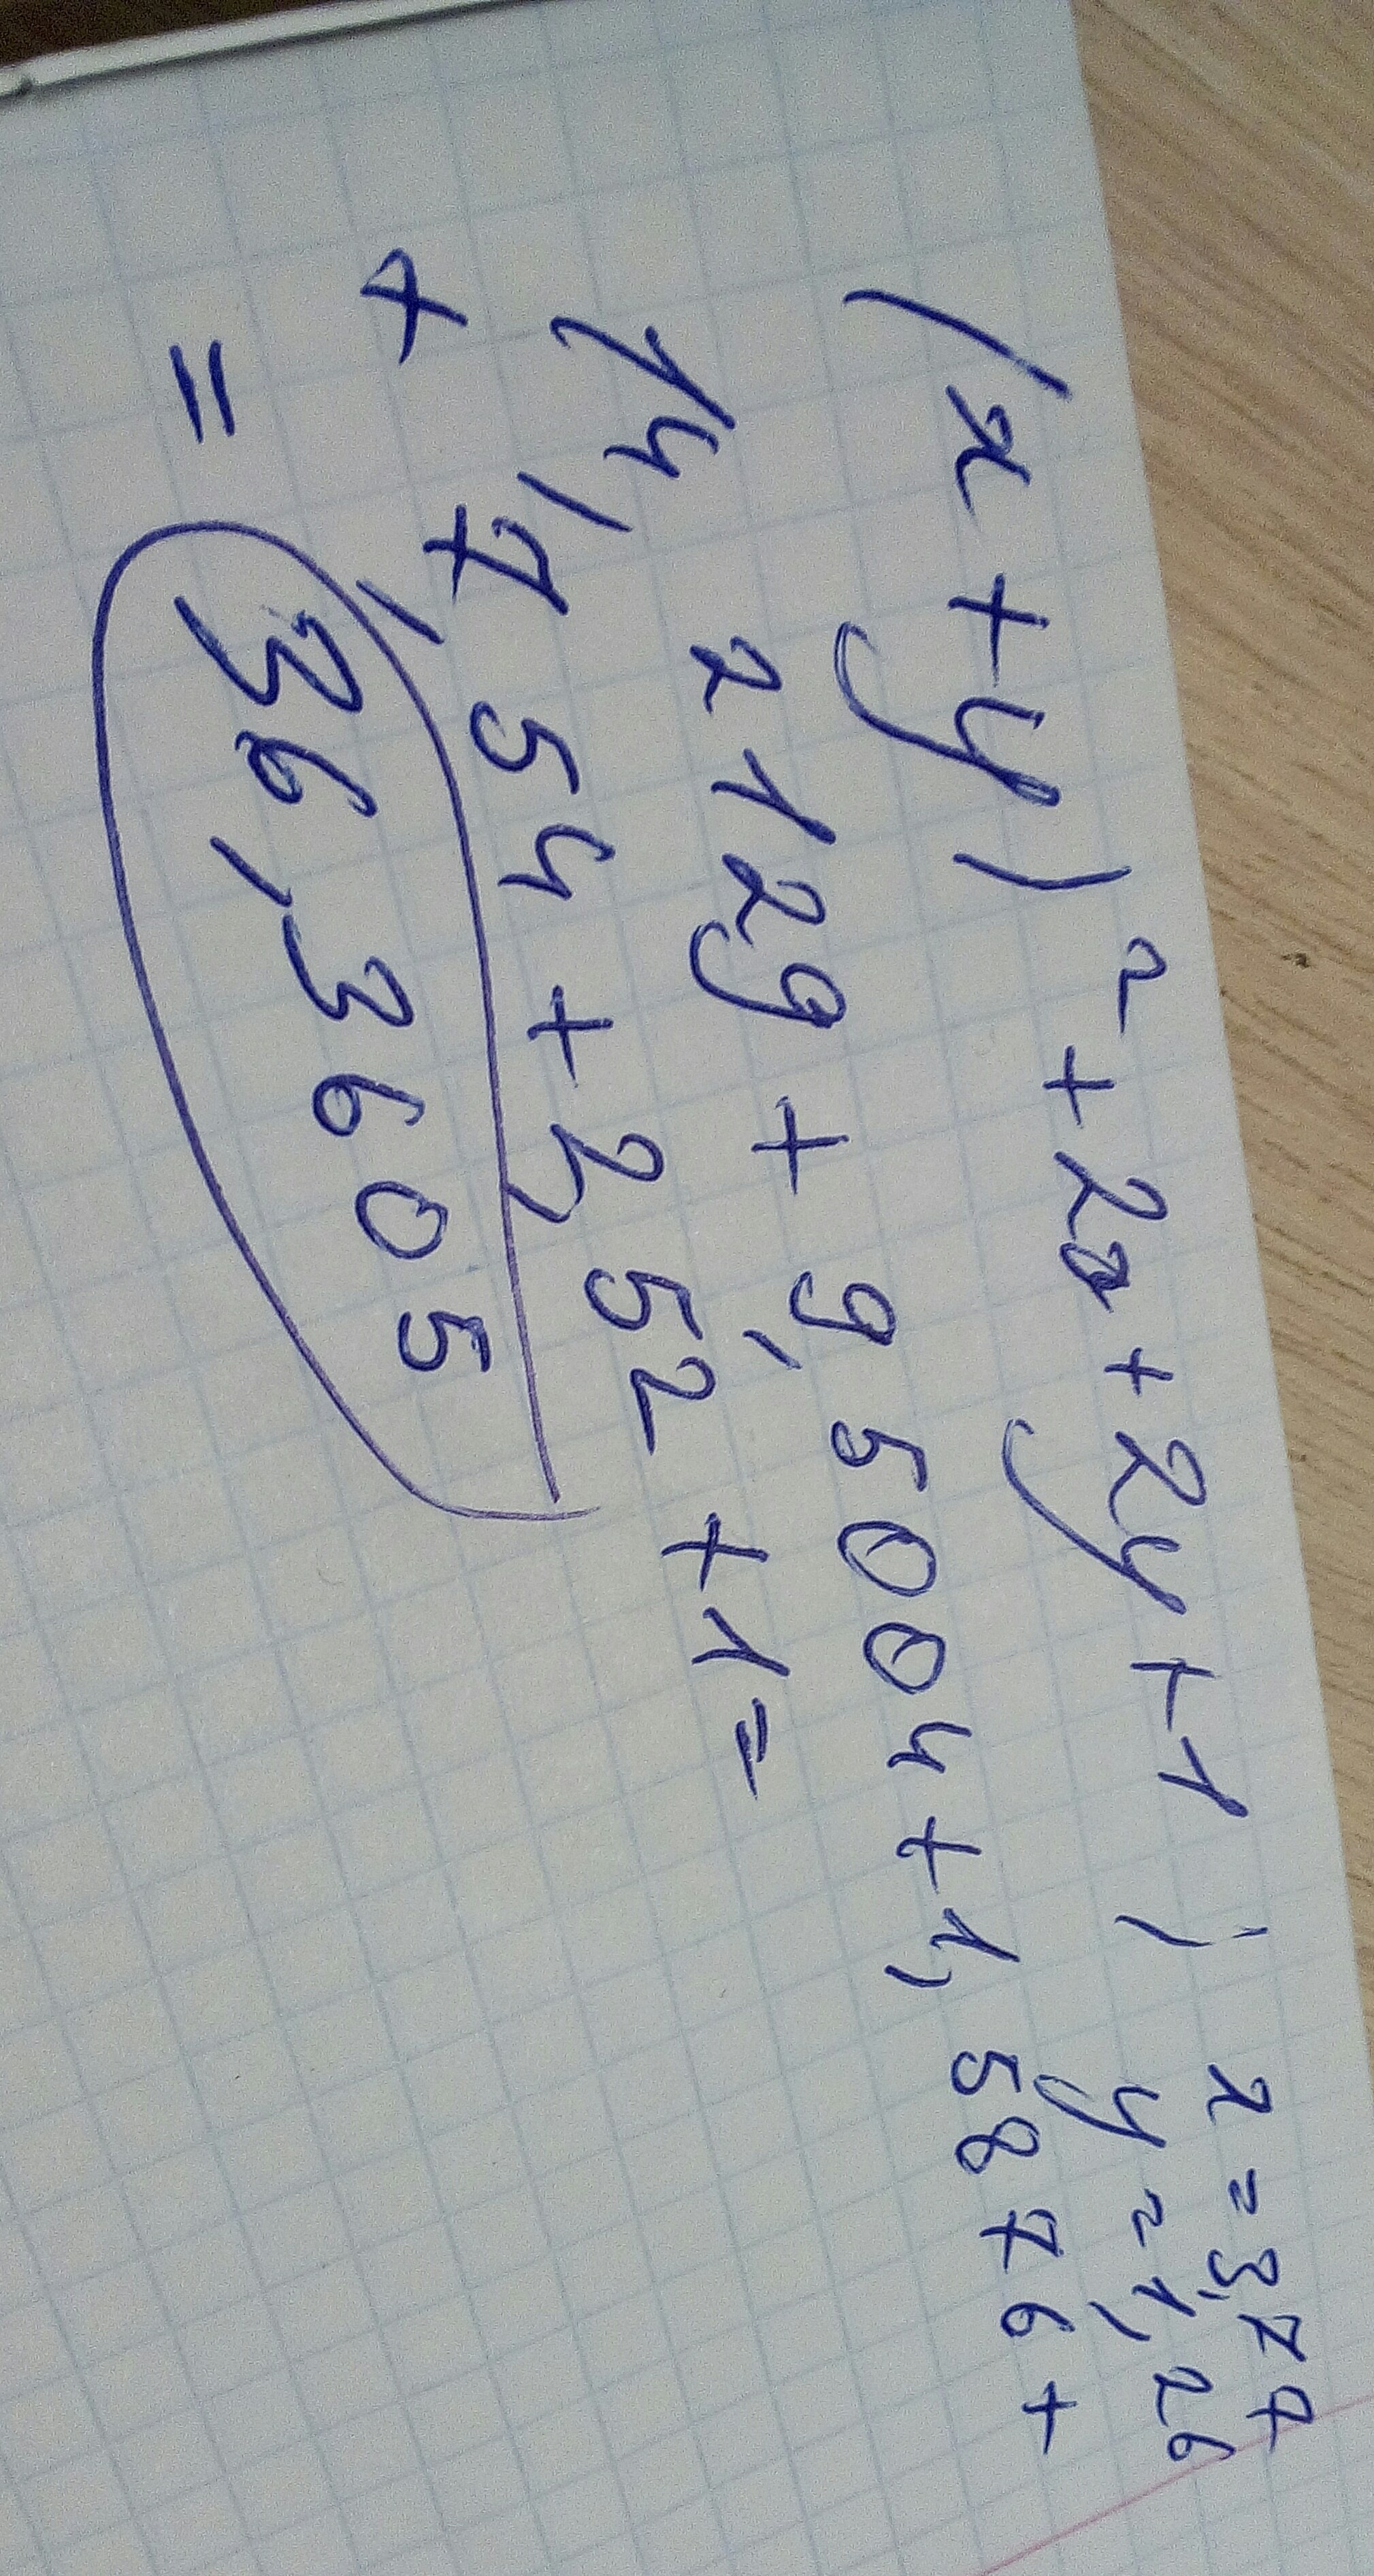 (x+y)²+2x+2y+1; x=3,77
y=1,26
14,2129+9,5004+1,5876+
+7,54+2,52+1=
=36,3605